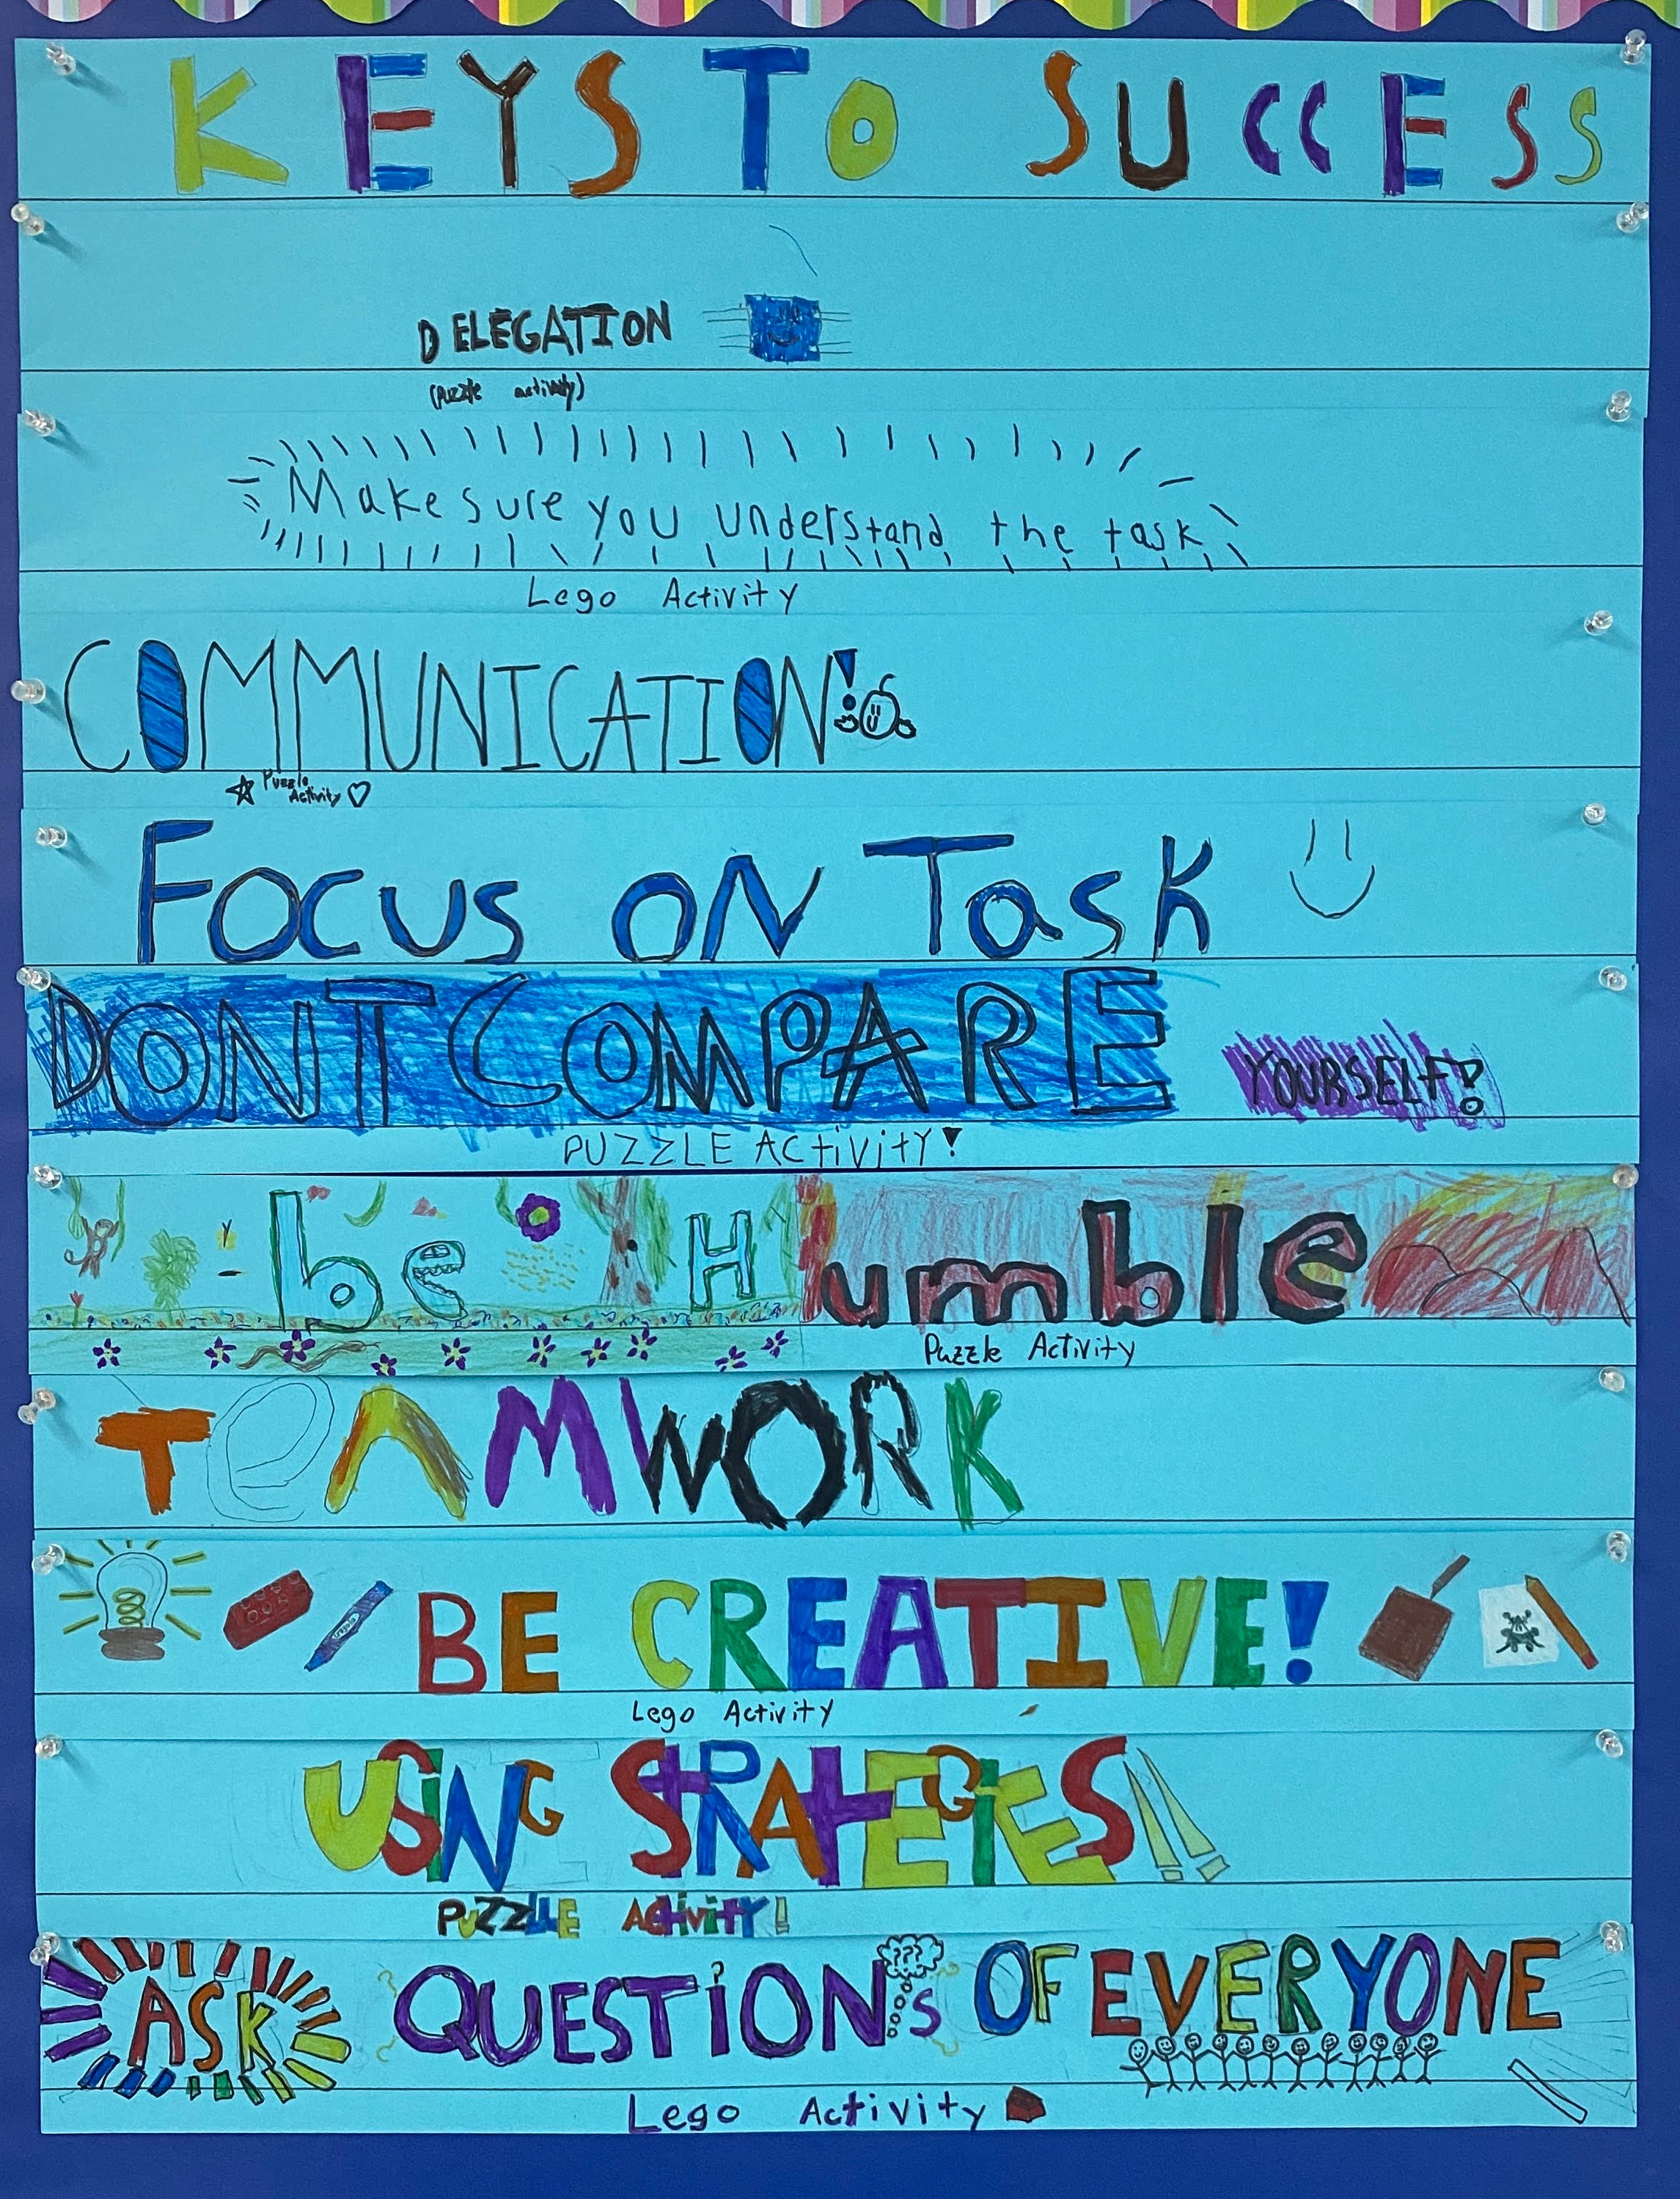 KEYS TO SUCCESS
DELEGATION
(Puzzle activity)
Make sure you understand the task
Lego Activity
COMMUNICATION!
Puzzle
Activity
Focus on Task
DONT COMPARE YOURSELF!
PUZZLE ACtiVitY!
be Humble
Puzzle Activity
TeAMWORK
BE CREATIVE!
Lego Activity
USiNG STRATEGiES!!
PUZZLE ACtiVitY!
???
ASK QUESTiONs OF EVERYONE
Lego Activity